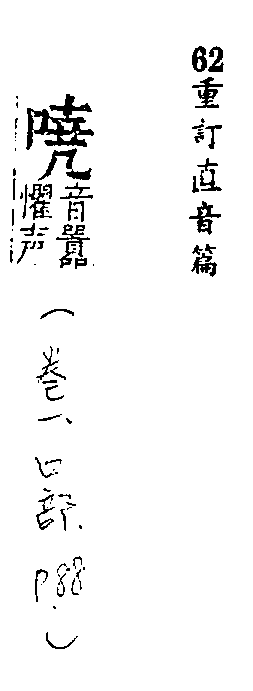 62重訂直音篇
嘵
音嚚
懼声
(巻一、口部、P.88)